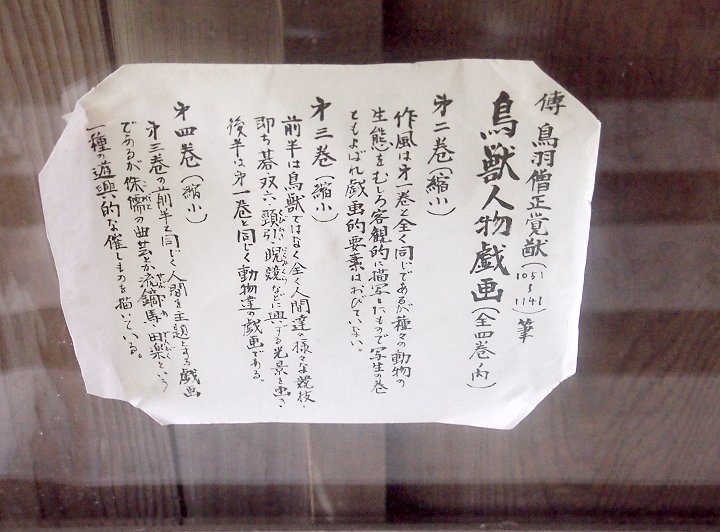 傳 鳥羽僧正覚猷(1053~1141)筆
鳥獣人物戯画(全四巻内)
第二巻(縮小)
作風は第一巻と全く同じであるが種々の動物の
生態をむしろ客観的に描写したもので写生の巻
ともよばれ戯画的要素はおびていない。
第三巻(縮小)
前半は鳥獣ではなく全く人間達の様々な競技・
即ち碁双六・頸引・睨競などに興ずる光景を画き
後半は第一巻と同じく動物達の戯画である。
第四巻(縮小)
第三巻の前半と同じく人間を主題とする戯画
であるが侏儒の曲芸か流鏑馬 田楽という
一種の遊興的な催しものを描いている。